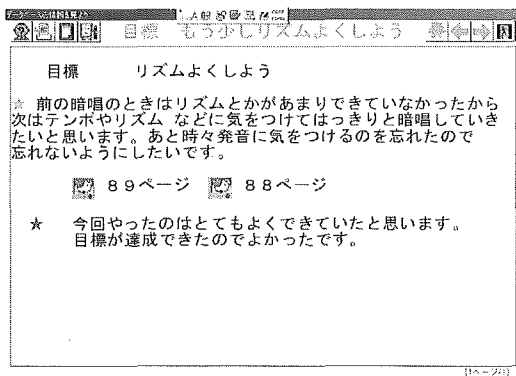 目標 もう少しリズムよくしよう
目標 リズムよくしよう
☆ 前の暗唱のときはリズムとかがあまりできていなかったから
次はテンポやリズム などに気をつけてはっきりと暗唱していき
たいと思います。あと時々発音に気をつけるのを忘れたので
忘れないようにしたいです。
89ページ 88ページ
★ 今回やったのはとてもよくできていたと思います。
目標が達成できたのでよかったです。